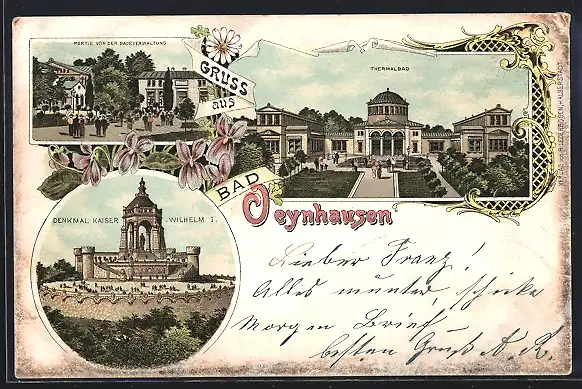 PARTIE VOR DER BADEVERWALTUNG
THERMALBAD
GRUSS
aus
BAD
Oeynhausen
DENKMAL KAISER WILHELM I.
Lieber Franz!
Alles munter, schicke
Morgen Brief
besten Gruß A. R.